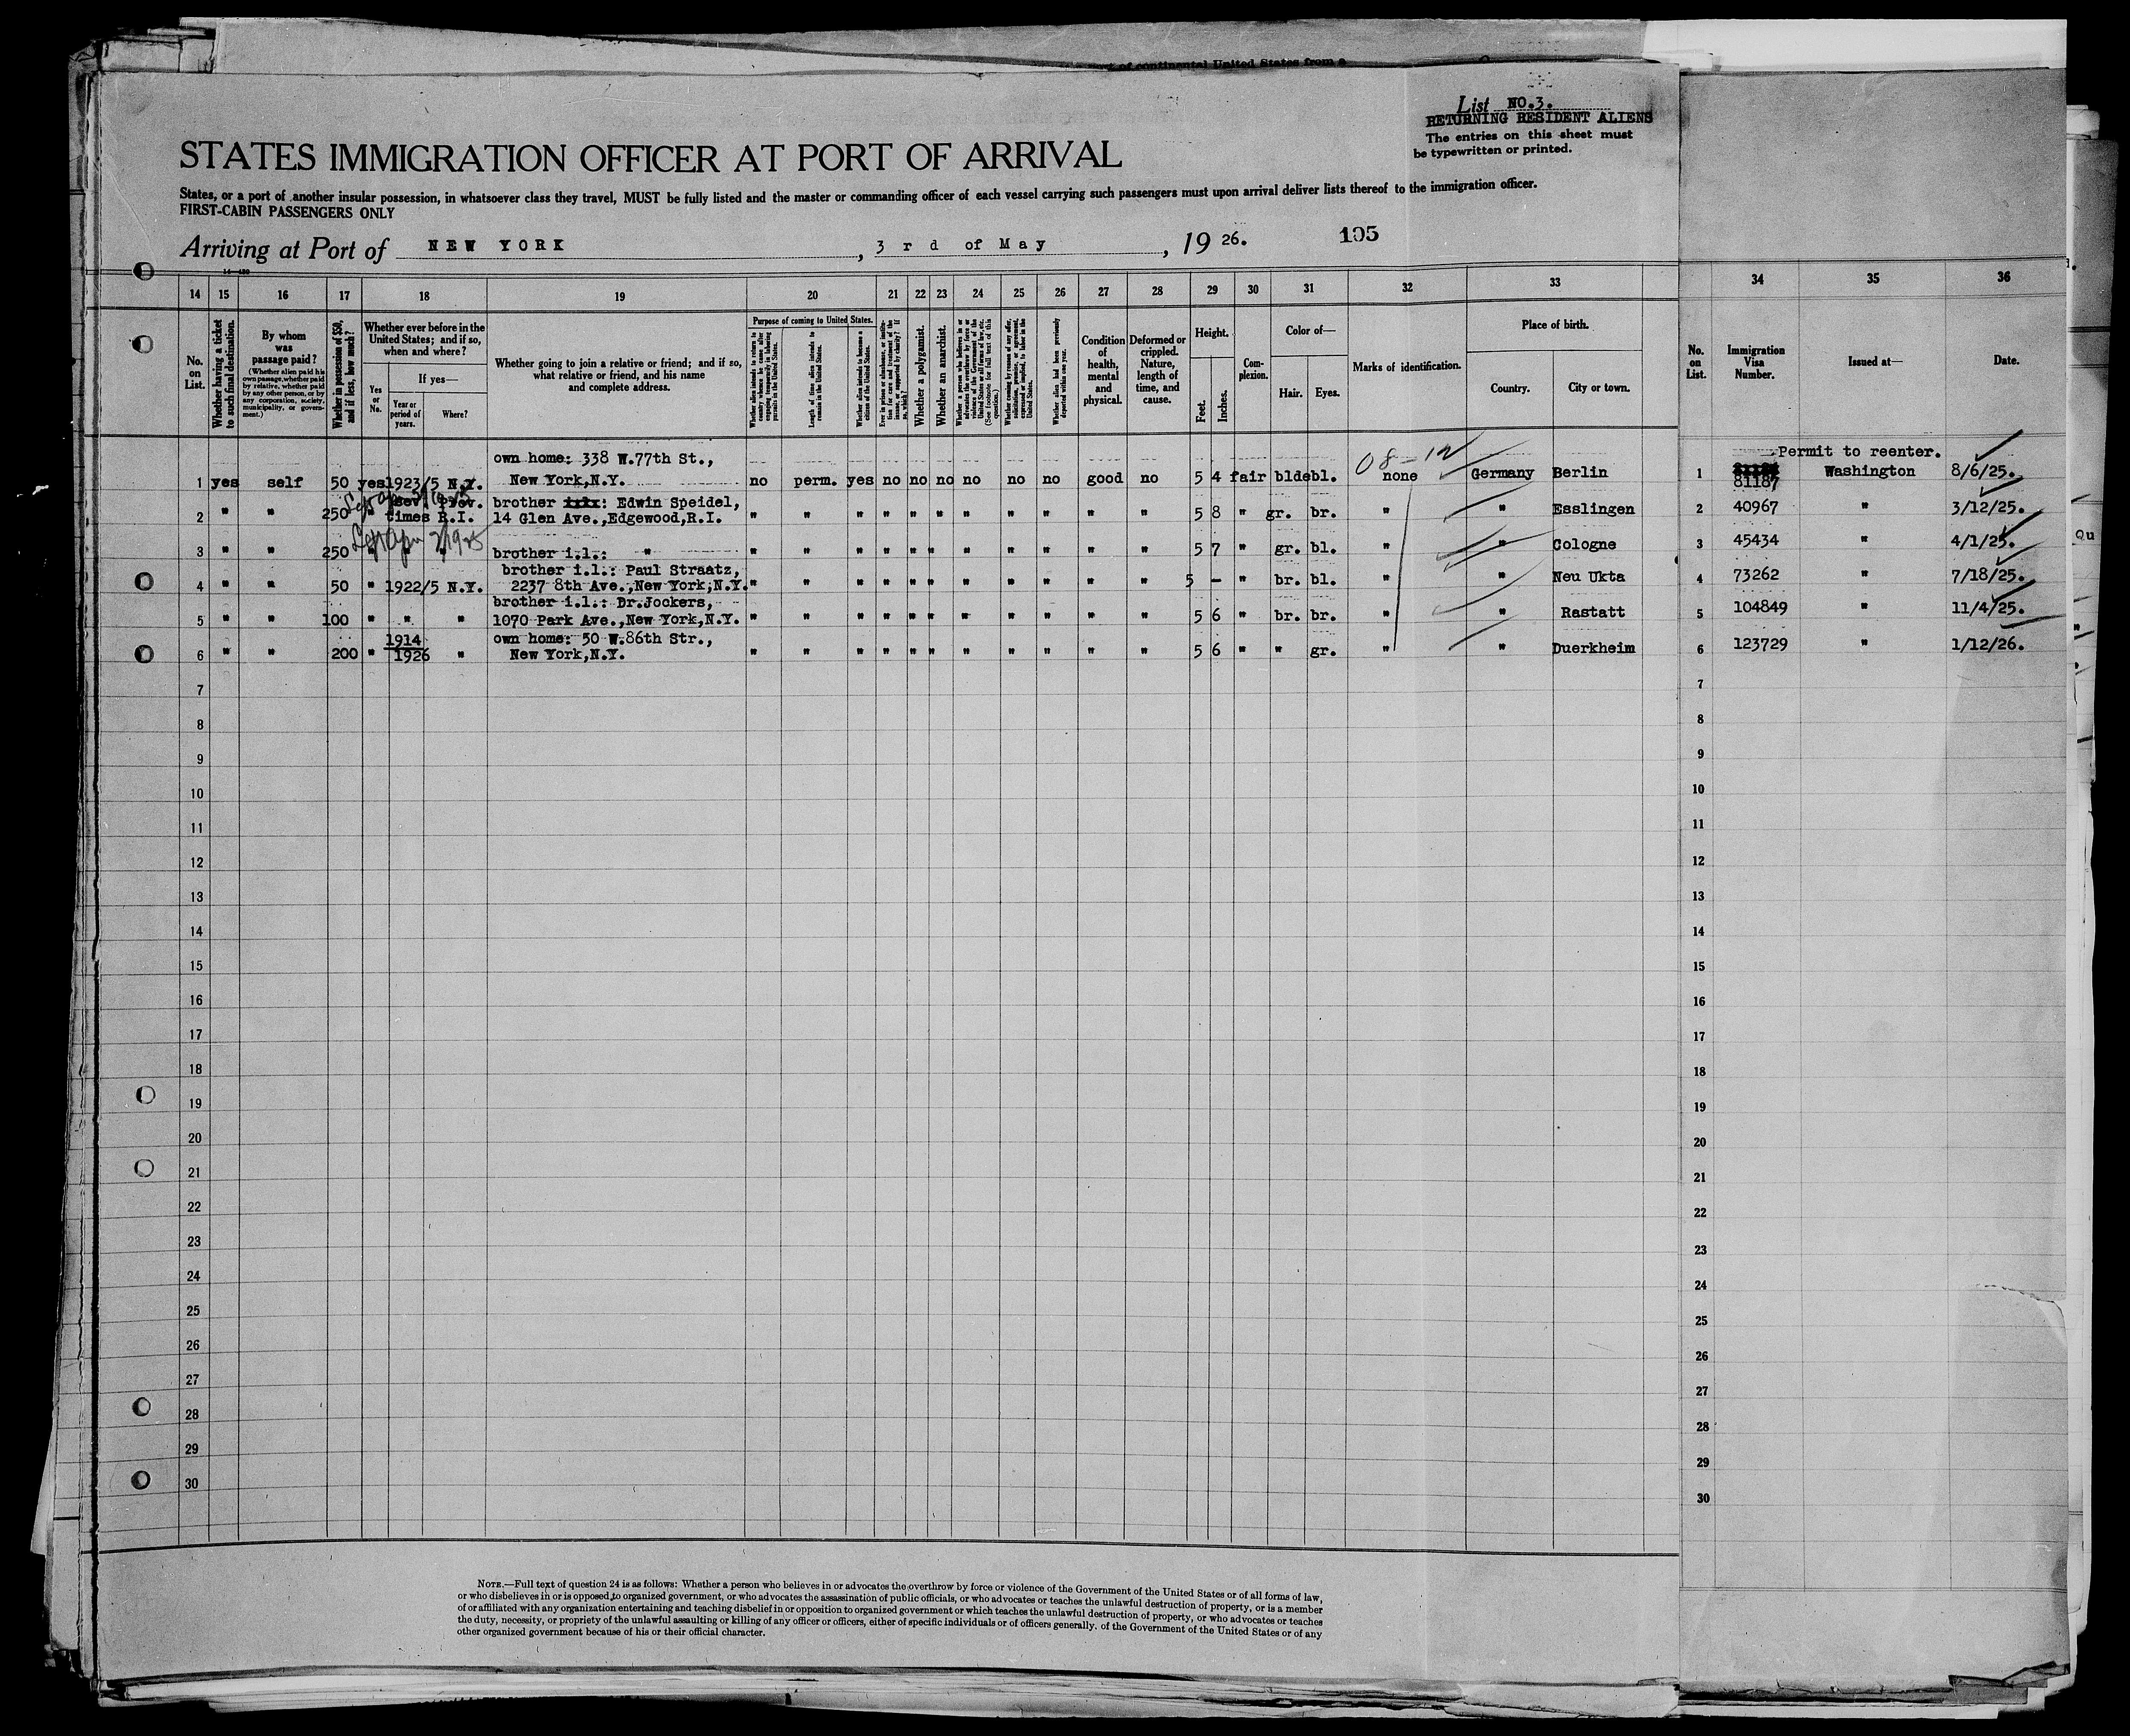 of continental United States from a
List NO.3.
RETURNING RESIDENT ALIENS
The entries on this sheet must
be typewritten or printed.
STATES IMMIGRATION OFFICER AT PORT OF ARRIVAL
States, or a port of another insular possession, in whatsoever class they travel, MUST be fully listed and the master or commanding officer of each vessel carrying such passengers must upon arrival deliver lists thereof to the immigration officer.
FIRST-CABIN PASSENGERS ONLY
Arriving at Port of NEW YORK, 3rd of May, 1926. 105
14 15 16 17 18 19 20 21 22 23 24 25 26 27 28 29 30 31 32 33 34 35 36
No. on List.
Whether having a ticket to such final destination.
By whom was passage paid?
(Whether alien paid his own passage, whether paid by relative, whether paid by any other person, or by any corporation, society, municipality, or government.)
Whether in possession of $50, and if less, how much?
Whether ever before in the United States; and if so, when and where?
Yes or No.
If yes—
Year or period of years.
Where?
Whether going to join a relative or friend; and if so, what relative or friend, and his name and complete address.
Purpose of coming to United States.
Length of time alien intends to remain in the United States.
Whether alien intends to become a citizen of the United States.
Whether a polygamist.
Whether an anarchist.
Whether alien had been previously deported within one year.
Condition of health, mental and physical.
Deformed or crippled. Nature, length of time, and cause.
Height.
Feet.
Inches.
Complexion.
Color of—
Hair.
Eyes.
Marks of identification.
Place of birth.
Country.
City or town.
No. on List.
Immigration Visa Number.
Issued at—
Date.
own home: 338 W.77th St.,
Permit to reenter.
1 yes self 50 yes 1923/5 N.Y. New York,N.Y. no perm. yes no no no no no no good no 5 4 fair blde bl. 08-12 none Germany Berlin 1 81187 Washington 8/6/25.
sev. Prov. brother: Edwin Speidel,
2 " " 250 " times R.I. 14 Glen Ave.,Edgewood,R.I. " " " " " " " " " " " " 5 8 " gr. br. " " Esslingen 2 40967 " 3/12/25.
3 " " 250 " " " brother i.l.: " " " " " " " " " " " " 5 7 " gr. bl. " " Cologne 3 45434 " 4/1/25.
brother i.l.: Paul Straatz,
4 " " 50 " 1922/5 N.Y. 2237 8th Ave.,New York,N.Y. " " " " " " " " " " " 5 - " br. bl. " " Neu Ukta 4 73262 " 7/18/25.
brother i.l.: Dr.Jockers,
5 " " 100 " " " 1070 Park Ave.,New York,N.Y. " " " " " " " " " " " 5 6 " br. br. " " Rastatt 5 104849 " 11/4/25.
1914 own home: 50 W.86th Str.,
6 " " 200 " 1926 " New York,N.Y. " " " " " " " " " " " 5 6 " " gr. " " Duerkheim 6 123729 " 1/12/26.
7 7
8 8
9 9
10 10
11 11
12 12
13 13
14 14
15 15
16 16
17 17
18 18
19 19
20 20
21 21
22 22
23 23
24 24
25 25
26 26
27 27
28 28
29 29
30 30
NOTE.—Full text of question 24 is as follows: Whether a person who believes in or advocates the overthrow by force or violence of the Government of the United States or of all forms of law,
or who disbelieves in or is opposed to organized government, or who advocates the assassination of public officials, or who advocates or teaches the unlawful destruction of property, or is a member
of or affiliated with any organization entertaining and teaching disbelief in or opposition to organized government or which teaches the unlawful destruction of property, or who advocates or teaches
the duty, necessity, or propriety of the unlawful assaulting or killing of any officer or officers, either of specific individuals or of officers generally, of the Government of the United States or of any
other organized government because of his or their official character.